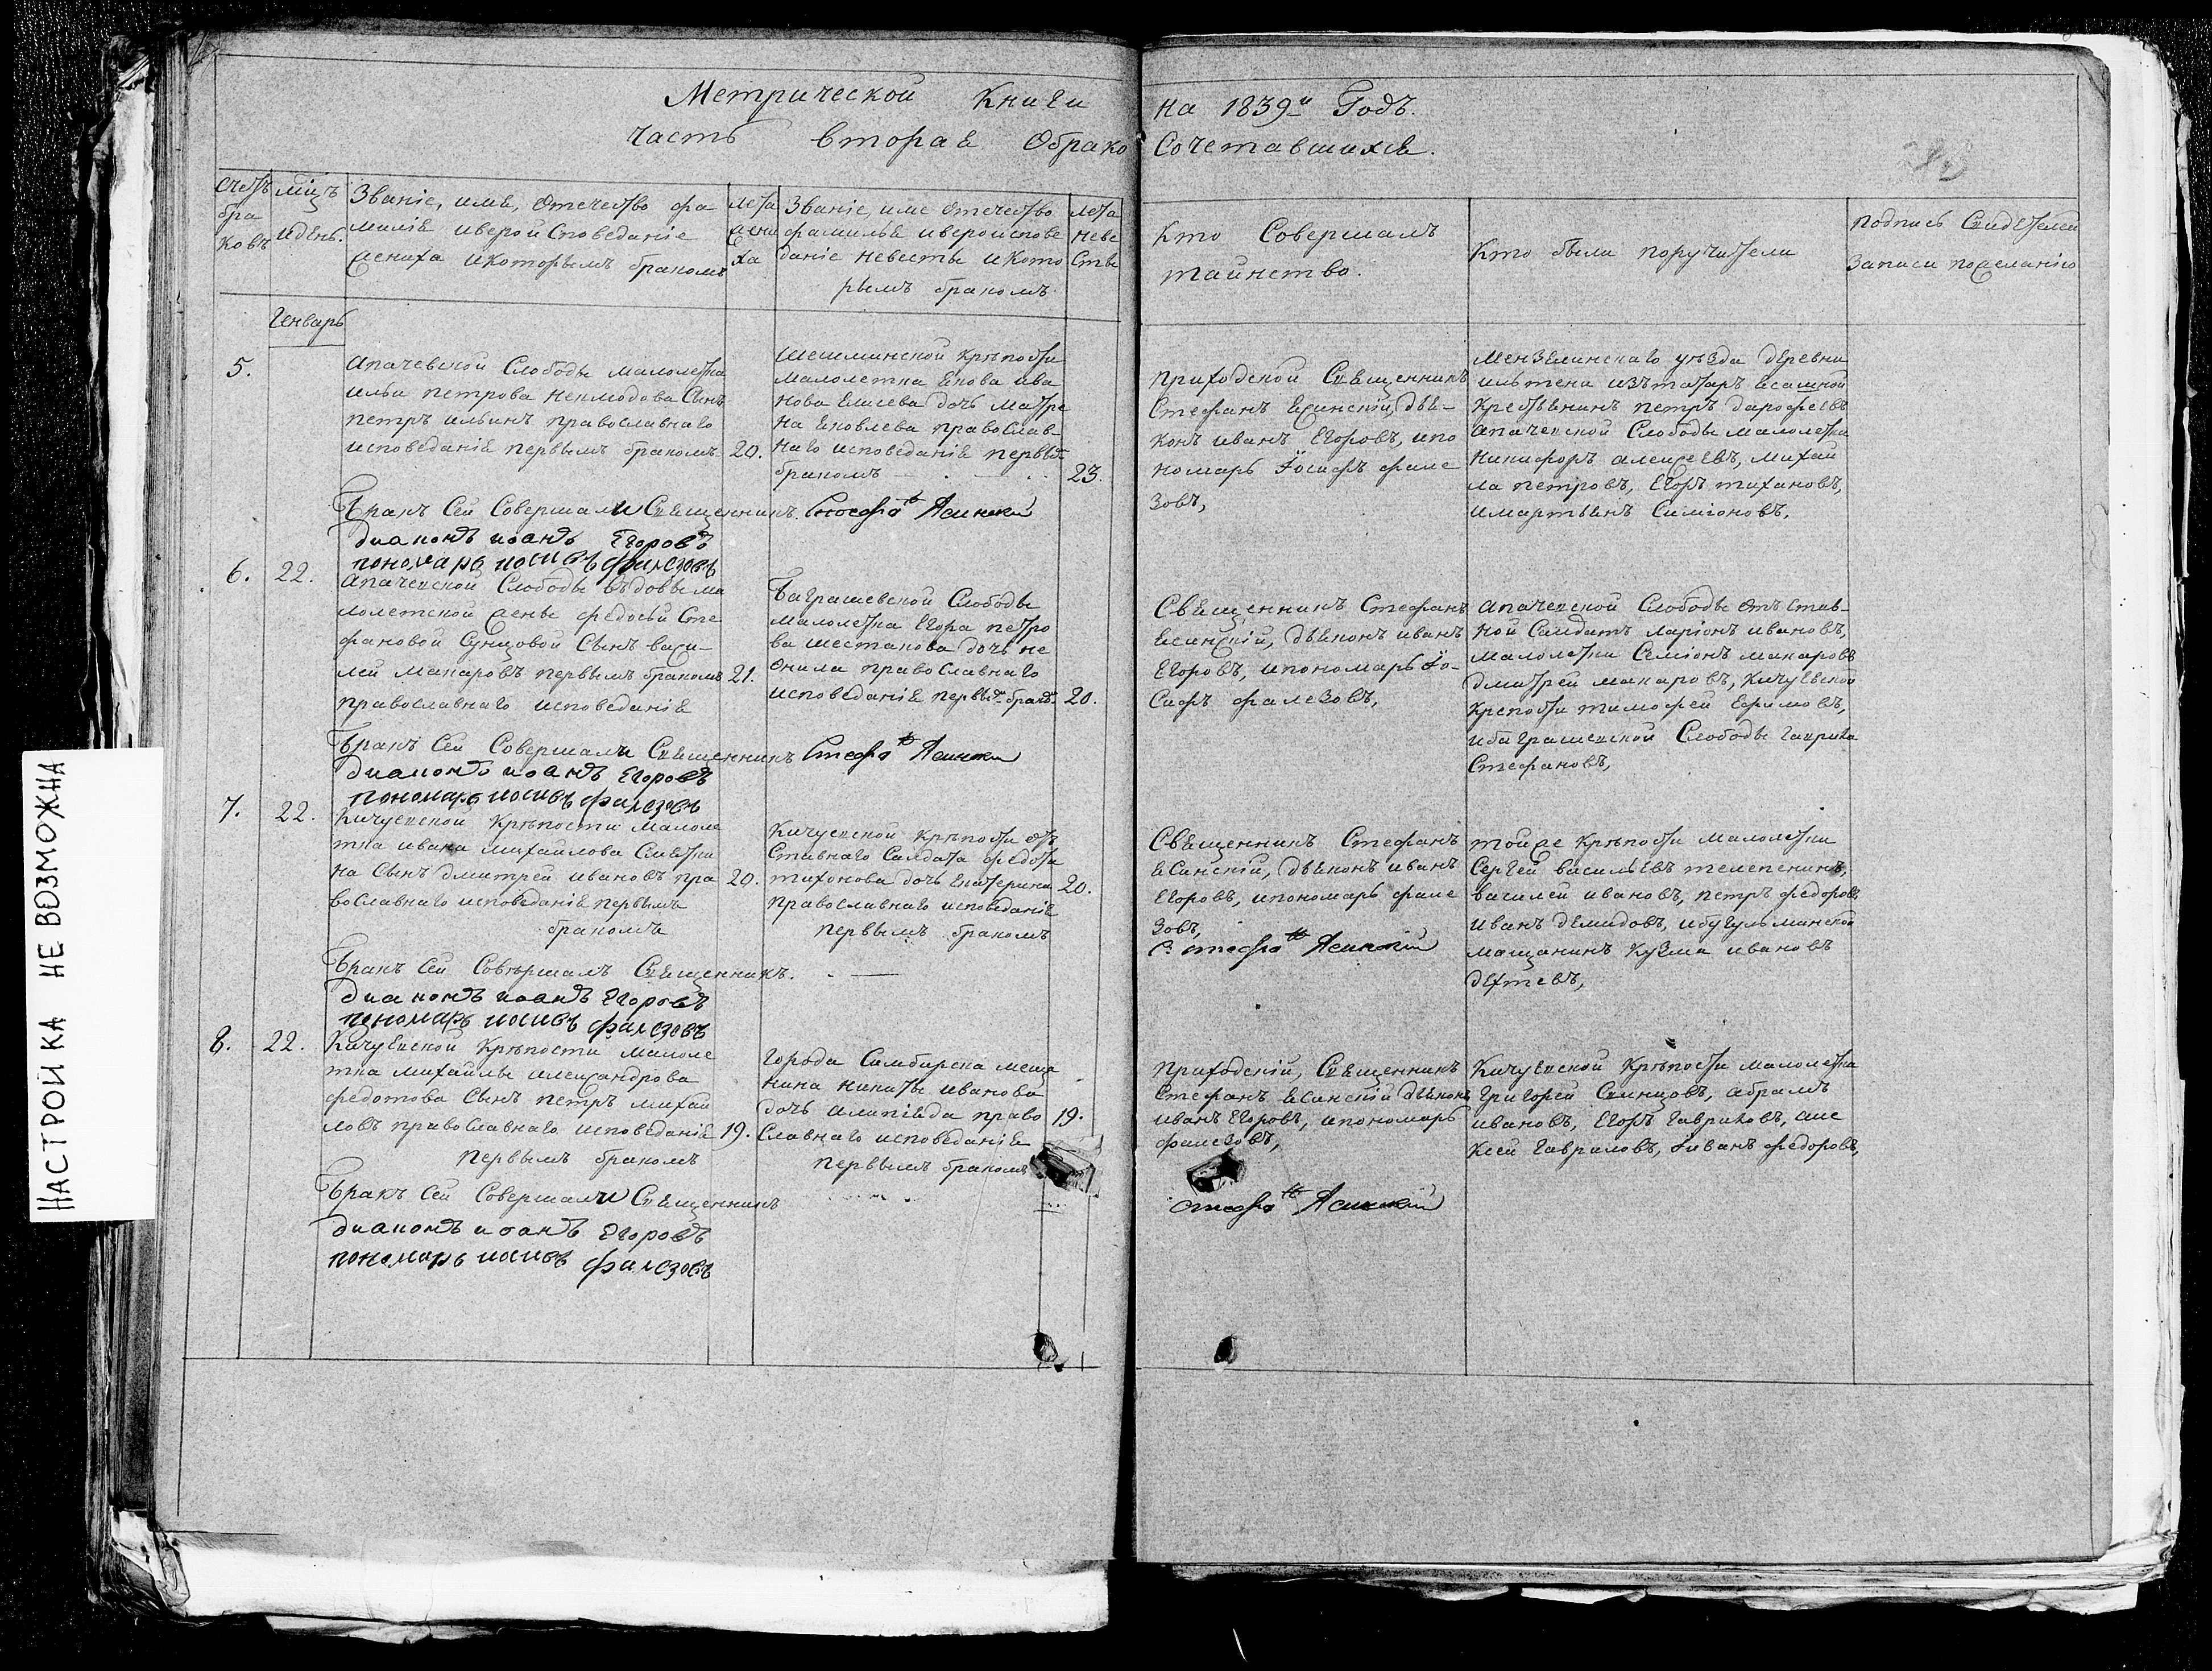 Метрической Книги
на 1839й Годъ.
Часть вторая Обрако
Сочетавшихся.
Счетъ бра ковъ
мцъ идень.
Званіе, имя, Отечество фа-
миліе иверой Споведаніе
жениха икоторымъ бракомъ
лета жени ха
Званіе, име Отечество
фамилье иверойспове
даніе невесты икото
рымъ бракомъ
лета неве сты
Кто Совершалъ
таинство.
Кто были поручители
Подпись Свидетелей
Записи пожеланію
Генварь
5.
Апачевской Слободы малолетка
ильи петрова Сынъ
петръ ильинъ православнаго
исповеданіе первымъ бракомъ 20.
Шешминской крѣпости
малолетка Якова ива
нова Елисева дочь матре
на Яковлева православ-
наго исповеданіе первы
бракомъ 23.
приходской Священникъ
Стефанъ Ясинскій, дья-
конъ иванъ Егоровъ, ипо
номарь Іосифъ фале
зовъ,
мензелинскаго уѣзда деревни
изътатаръ Ясашной
крестьянинъ петръ дарофеевъ
апачевской Слободы малолетки
никифоръ алексеевъ, михай
ла петровъ, Егоръ тихановъ,
имартынъ Симіоновъ.
Бракъ Сей Совершали Священникъ. Стефанъ Ясинскій
диаконъ иоанъ Егоровъ
пономарь иосивъ фалезовъ
6. 22.
Апачевской Слободы въдовы ма
лолетской жены федосьи Сте
фановой Сунцовой Сынъ васи-
лей макаровъ первымъ бракомъ 21.
православнаго исповеданіе
Баграшевской Слободы
малолетка Егора петро
ва шестакова дочь не
онила православнаго
исповеданіе первы бракъ. 20.
Священникъ Стефанъ
Ясинскій, дьяконъ иванъ
Егоровъ, ипономарь Іо-
Сифъ фалезовъ,
Апачевской Слободы отъстав-
ной Салдатъ ларіонъ ивановъ,
малолетки Семіонъ макаровъ
дмитрей макаровъ, Кичуевской
крепости тимофей Ефимовъ,
ибаграшевской Слободы гаврила
Стефановъ,
Бракъ Сей Совершали Священникъ Стефанъ Ясинскій
диаконъ иоанъ Егоровъ
пономарь иосивъ фалезовъ
7. 22.
Кичуевской крѣпости малоле
тка ивана михайлова Сметки
на Сынъ дмитрей ивановъ пра 20.
вославнаго исповеданіе первымъ
бракомъ
Кичуевской крѣпости отъ
ставнаго Салдата федота
тихонова дочь Екатерина 20.
православнаго исповеданіе
первымъ бракомъ
Священникъ Стефанъ
Ясинскій, дьяконъ иванъ
Егоровъ, ипономарь фале
зовъ,
С. Стефанъ Ясинскій
тойже крѣпости малолетки
Сергей васильевъ телепенинъ,
василей ивановъ, петръ федоровъ
иванъ демидовъ, ибугульминской
мащанинъ кузма ивановъ
дехтевъ,
Бракъ Сей Совершалъ Священникъ.
диаконъ иоанъ Егоровъ
пономарь иосивъ фалезовъ
8. 22.
Кичуевской крѣпости малоле
тка михайлы александрова
федотова Сынъ петръ михай
ловъ православнаго исповеданіе 19.
первымъ бракомъ
города Симбирска меща
нина никиты иванова
дочь алипіяда право 19.
Славнаго исповеданіе
первымъ бракомъ
Приходскій, Священникъ
Стефанъ Ясинскій дьяконъ
иванъ Егоровъ, ипономарь
фалезовъ,
Стефанъ Ясинскій
Кичуевской крѣпости малолетка
григорей Сунцовъ, абрамъ
ивановъ, Егоръ гавриловъ, але
ксей гавриловъ, иванъ федоровъ,
Бракъ Сей Совершали Священникъ
диаконъ иоанъ Егоровъ
пономарь иосивъ фалезовъ
НАСТРОЙКА НЕ ВОЗМОЖНА